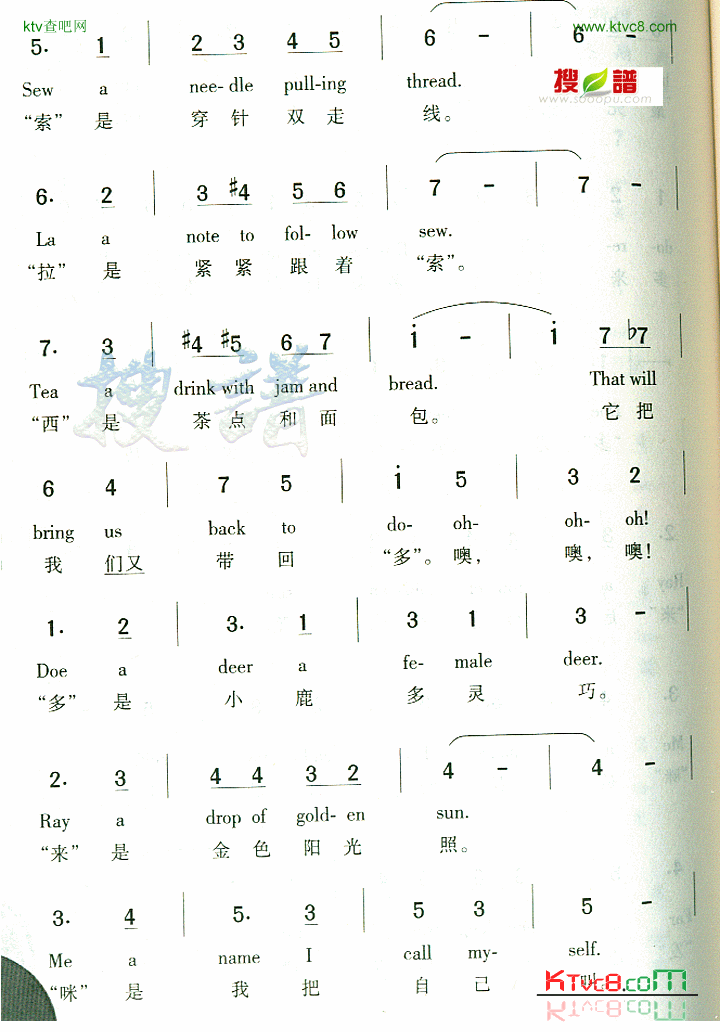 ktv查吧网 www.ktvc8.com
5. 1 | 2 3 4 5 | 6 - | 6 -
搜谱
www.sooopu.com
Sew a nee- dle pull-ing thread.
“索”是 穿 针 双 走 线。
6. 2 | 3 #4 5 6 | 7 - | 7 -
La a note to fol- low sew.
“拉”是 紧 紧 跟 着 “索”。
7. 3 | #4 #5 6 7 | i - | i 7 b7
搜谱
Tea a drink with jam and bread. That will
“西”是 茶 点 和 面 包。 它 把
6 4 | 7 5 | i 5 | 3 2
bring us back to do- oh- oh- oh!
我 们又 带 回 “多”。噢, 噢, 噢!
1. 2 | 3. 1 | 3 1 | 3 -
Doe a deer a fe- male deer.
“多”是 小 鹿 多 灵 巧。
2. 3 | 4 4 3 2 | 4 - | 4 -
Ray a drop of gold- en sun.
“来”是 金 色 阳 光 照。
3. 4 | 5. 3 | 5 3 | 5 -
Me a name I call my- self.
“咪”是 我 把 自 己
KTVC8.com